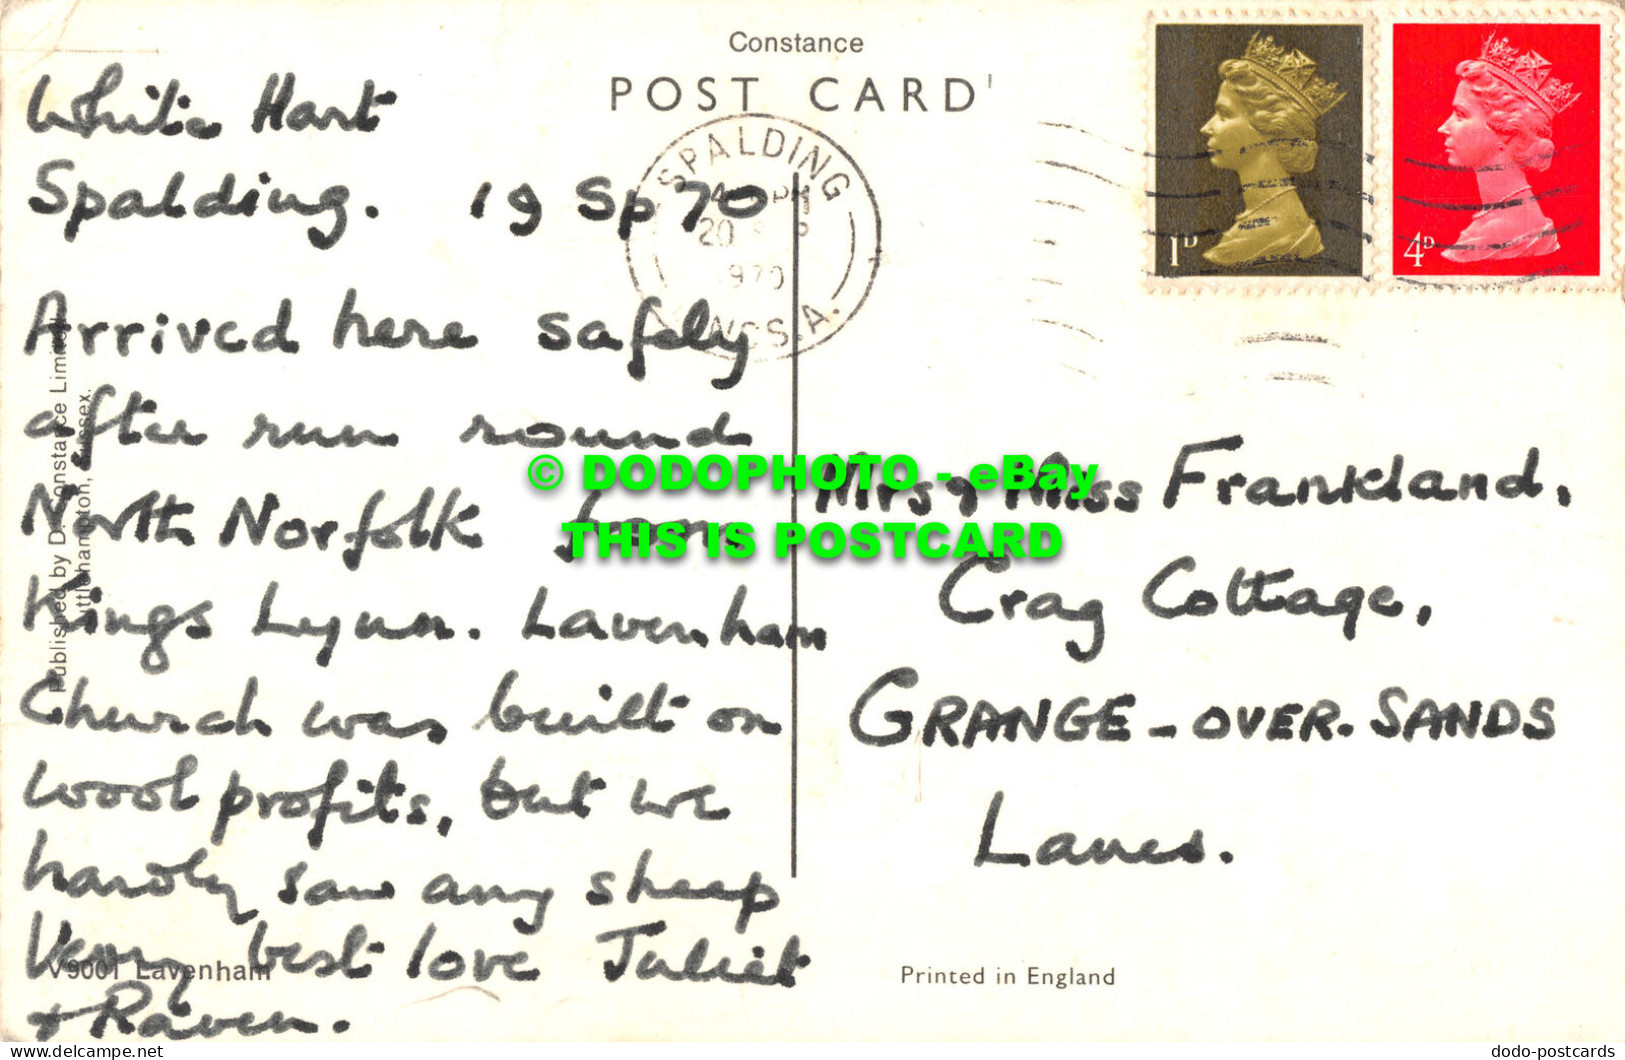 Constance
POST CARD
White Hart
Spalding. 19 Sp 70
Arrived here safely
after run round
North Norfolk from
Kings Lynn. Lavenham
Church was built on
wool profits, but we
hardly saw any sheep
Very best love Juliet
& Raven.
SPALDING
20
1970
LINCS. A.
1D
4D
Mrs & Miss Frankland,
Crag Cottage,
GRANGE-OVER-SANDS
Lancs.
Published by D. Constance Limited
Littlehampton, Sussex.
V9001 Lavenham
Printed in England
© DODOPHOTO - eBay
THIS IS POSTCARD
dodo-postcards